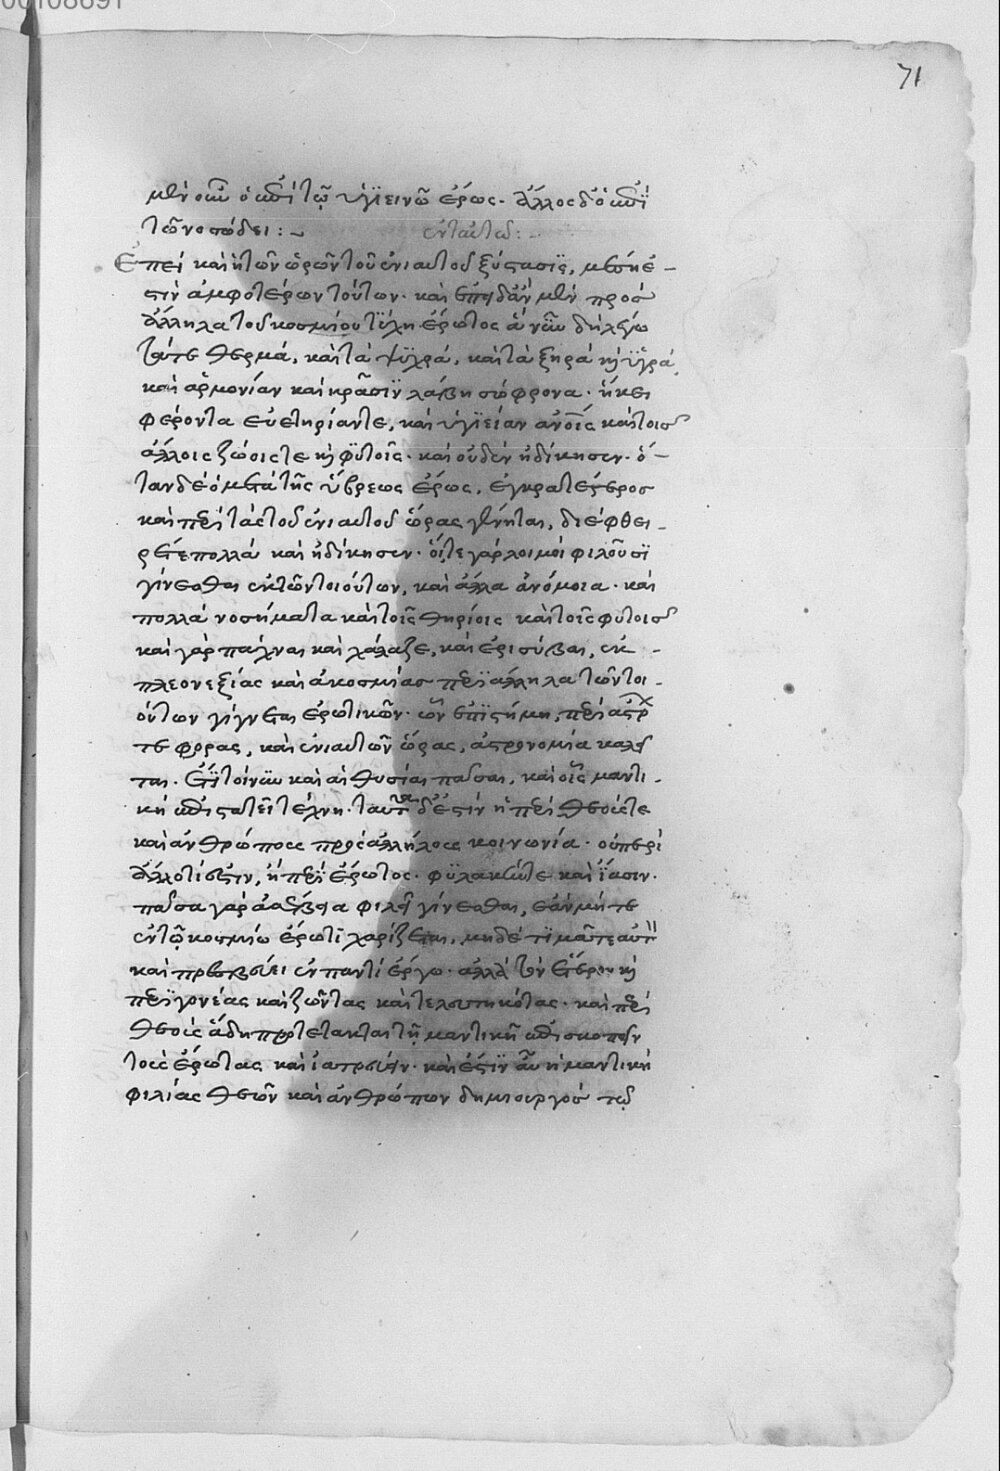 00108691
71
μὲν οὖν ὁ ἐπὶ τῷ ὑγιεινῷ ἔρως. ἄλλος δὲ ὁ ἐπὶ
τῶ νοσώδει :~ ἐν ταυτῶ :~
Ἐπεὶ καὶ ἡ τῶν ὡρῶν τοῦ ἐνιαυτοῦ ξύστασις, μεστή ἐ-
στιν ἀμφοτέρων τούτων. καὶ ἐπειδὰν μὲν πρὸς
ἄλληλα τοῦ κοσμίου τύχη ἔρωτος ἃ νῦν δὴ ἔλεγον
τάτε θερμά, καὶ τὰ ψυχρά, καὶ τὰ ξηρὰ καὶ ὑγρά,
καὶ ἁρμονίαν καὶ κρᾶσιν λάβη σώφρονα. ἥκει
φέροντα εὐετηρίαντε, καὶ ὑγιείαν ἀνοις καὶ τοῖς
ἄλλοις ζώοις τε καὶ φυτοῖς. καὶ οὐδὲν ἠδίκησεν. ὅ-
ταν δὲ ὁ μετὰ τῆς ὕβρεως ἔρως, ἐγκρατέστερος
καὶ περὶ τὰς τοῦ ἐνιαυτοῦ ὥρας γένηται, διέφθει-
ρέτε πολλὰ καὶ ἠδίκησεν. οἵτε γὰρ λοιμοὶ φιλοῦσι
γίνεσθαι ἐκ τῶν τοιούτων, καὶ ἄλλα ἀνόμοια. καὶ
πολλὰ νοσήματα καὶ τοῖς θηρίοις καὶ τοῖς φυτοῖς
καὶ γὰρ πάχναι καὶ χάλαζαι, καὶ ἐρισύβαι, ἐκ -
πλεονεξίας καὶ ἀκοσμίας περὶ ἄλληλα τῶν τοι-
ούτων γίγνεται ἐρωτικῶν. ὧν ἐπιστήμη, περὶ ἄστρ
τε φορας, καὶ ἐνιαυτῶν ὥρας, ἀστρονομία καλεῖ
ται. ἔτι τοίνυν καὶ αἱ θυσίαι πᾶσαι, καὶ οἷς μαντι-
κὴ ἐπιστατεῖ τέχνη. ταῦτα δέ ἐστιν ἡ περὶ θεούς τε
καὶ ἀνθρώπους πρὸς ἀλλήλους κοινωνία. οὐ περὶ
ἄλλο τί ἐστιν, ἢ περὶ ἔρωτος. φυλακήντε καὶ ἴασιν.
πᾶσα γὰρ ἀσέβεια φιλεῖ γίνεσθαι, ἐὰν μή τε
ἐν τῷ κοσμίω ἔρωτι χαρίζεται, μηδὲ τιμᾶτε αὐτὸν
καὶ πρεσβεύει ἐν παντὶ ἔργω. ἀλλὰ τὸν ἕτερον καὶ
περὶ γονέας καὶ ζῶντας καὶ τελευτηκότας. καὶ περὶ
θεοὺς ἃ δὴ προτέτακται τῇ μαντικῇ ἐπισκοπεῖν
τοὺς ἔρωτας καὶ ἰατρεύειν. καὶ ἔστιν αὖ ἡ μαντικὴ
φιλίας θεῶν καὶ ἀνθρώπων δημιουργὸς τῷ